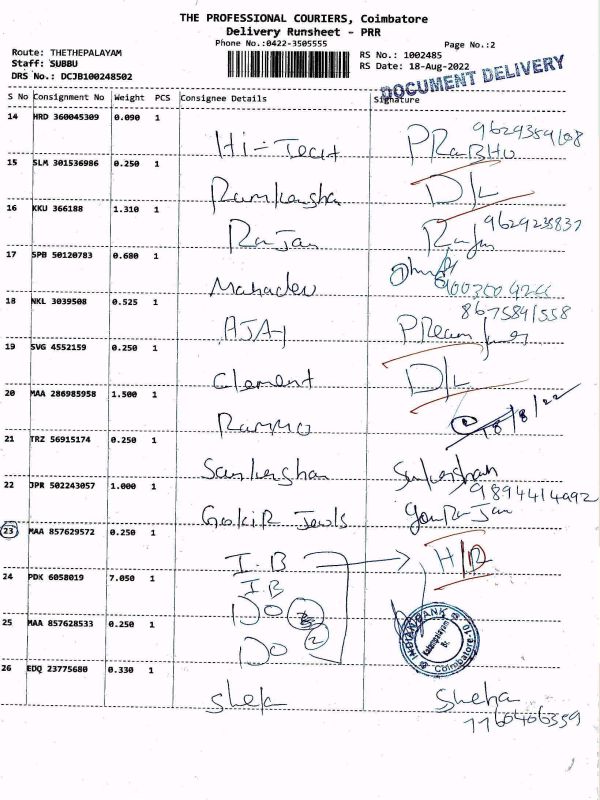 THE PROFESSIONAL COURIERS, Coimbatore
Delivery Runsheet - PRR
Phone No.:0422-3505555
Page No.:2
Route: THETHEPALAYAM
RS No.: 1002485
Staff: SUBBU
RS Date: 18-Aug-2022
DRS No.: DCJB100248502
DOCUMENT DELIVERY
S No Consignment No Weight PCS Consignee Details Signature
14 HRD 360045309 0.090 1
Hi-Tech PRaBHU
15 SLM 301536986 0.250 1
D/L
16 KKU 366188 1.310 1
RaJan 9629235837
17 SPB 50120783 0.680 1
Mahadev
18 NKL 3039508 0.525 1
AJAY 8675841558
19 SVG 4552159 0.250 1
Clement D/L
20 MAA 286985958 1.500 1
18/8/22
21 TRZ 56915174 0.250 1
22 JPR 502243057 1.000 1
9894414092
23 MAA 857629572 0.250 1
I.B
24 PDK 6058019 7.050 1
I.B
DO
25 MAA 857628533 0.250 1
DO 2
INDIAN BANK
Coimbatore
26 EDQ 23775680 0.330 1
Sheha
7760406359